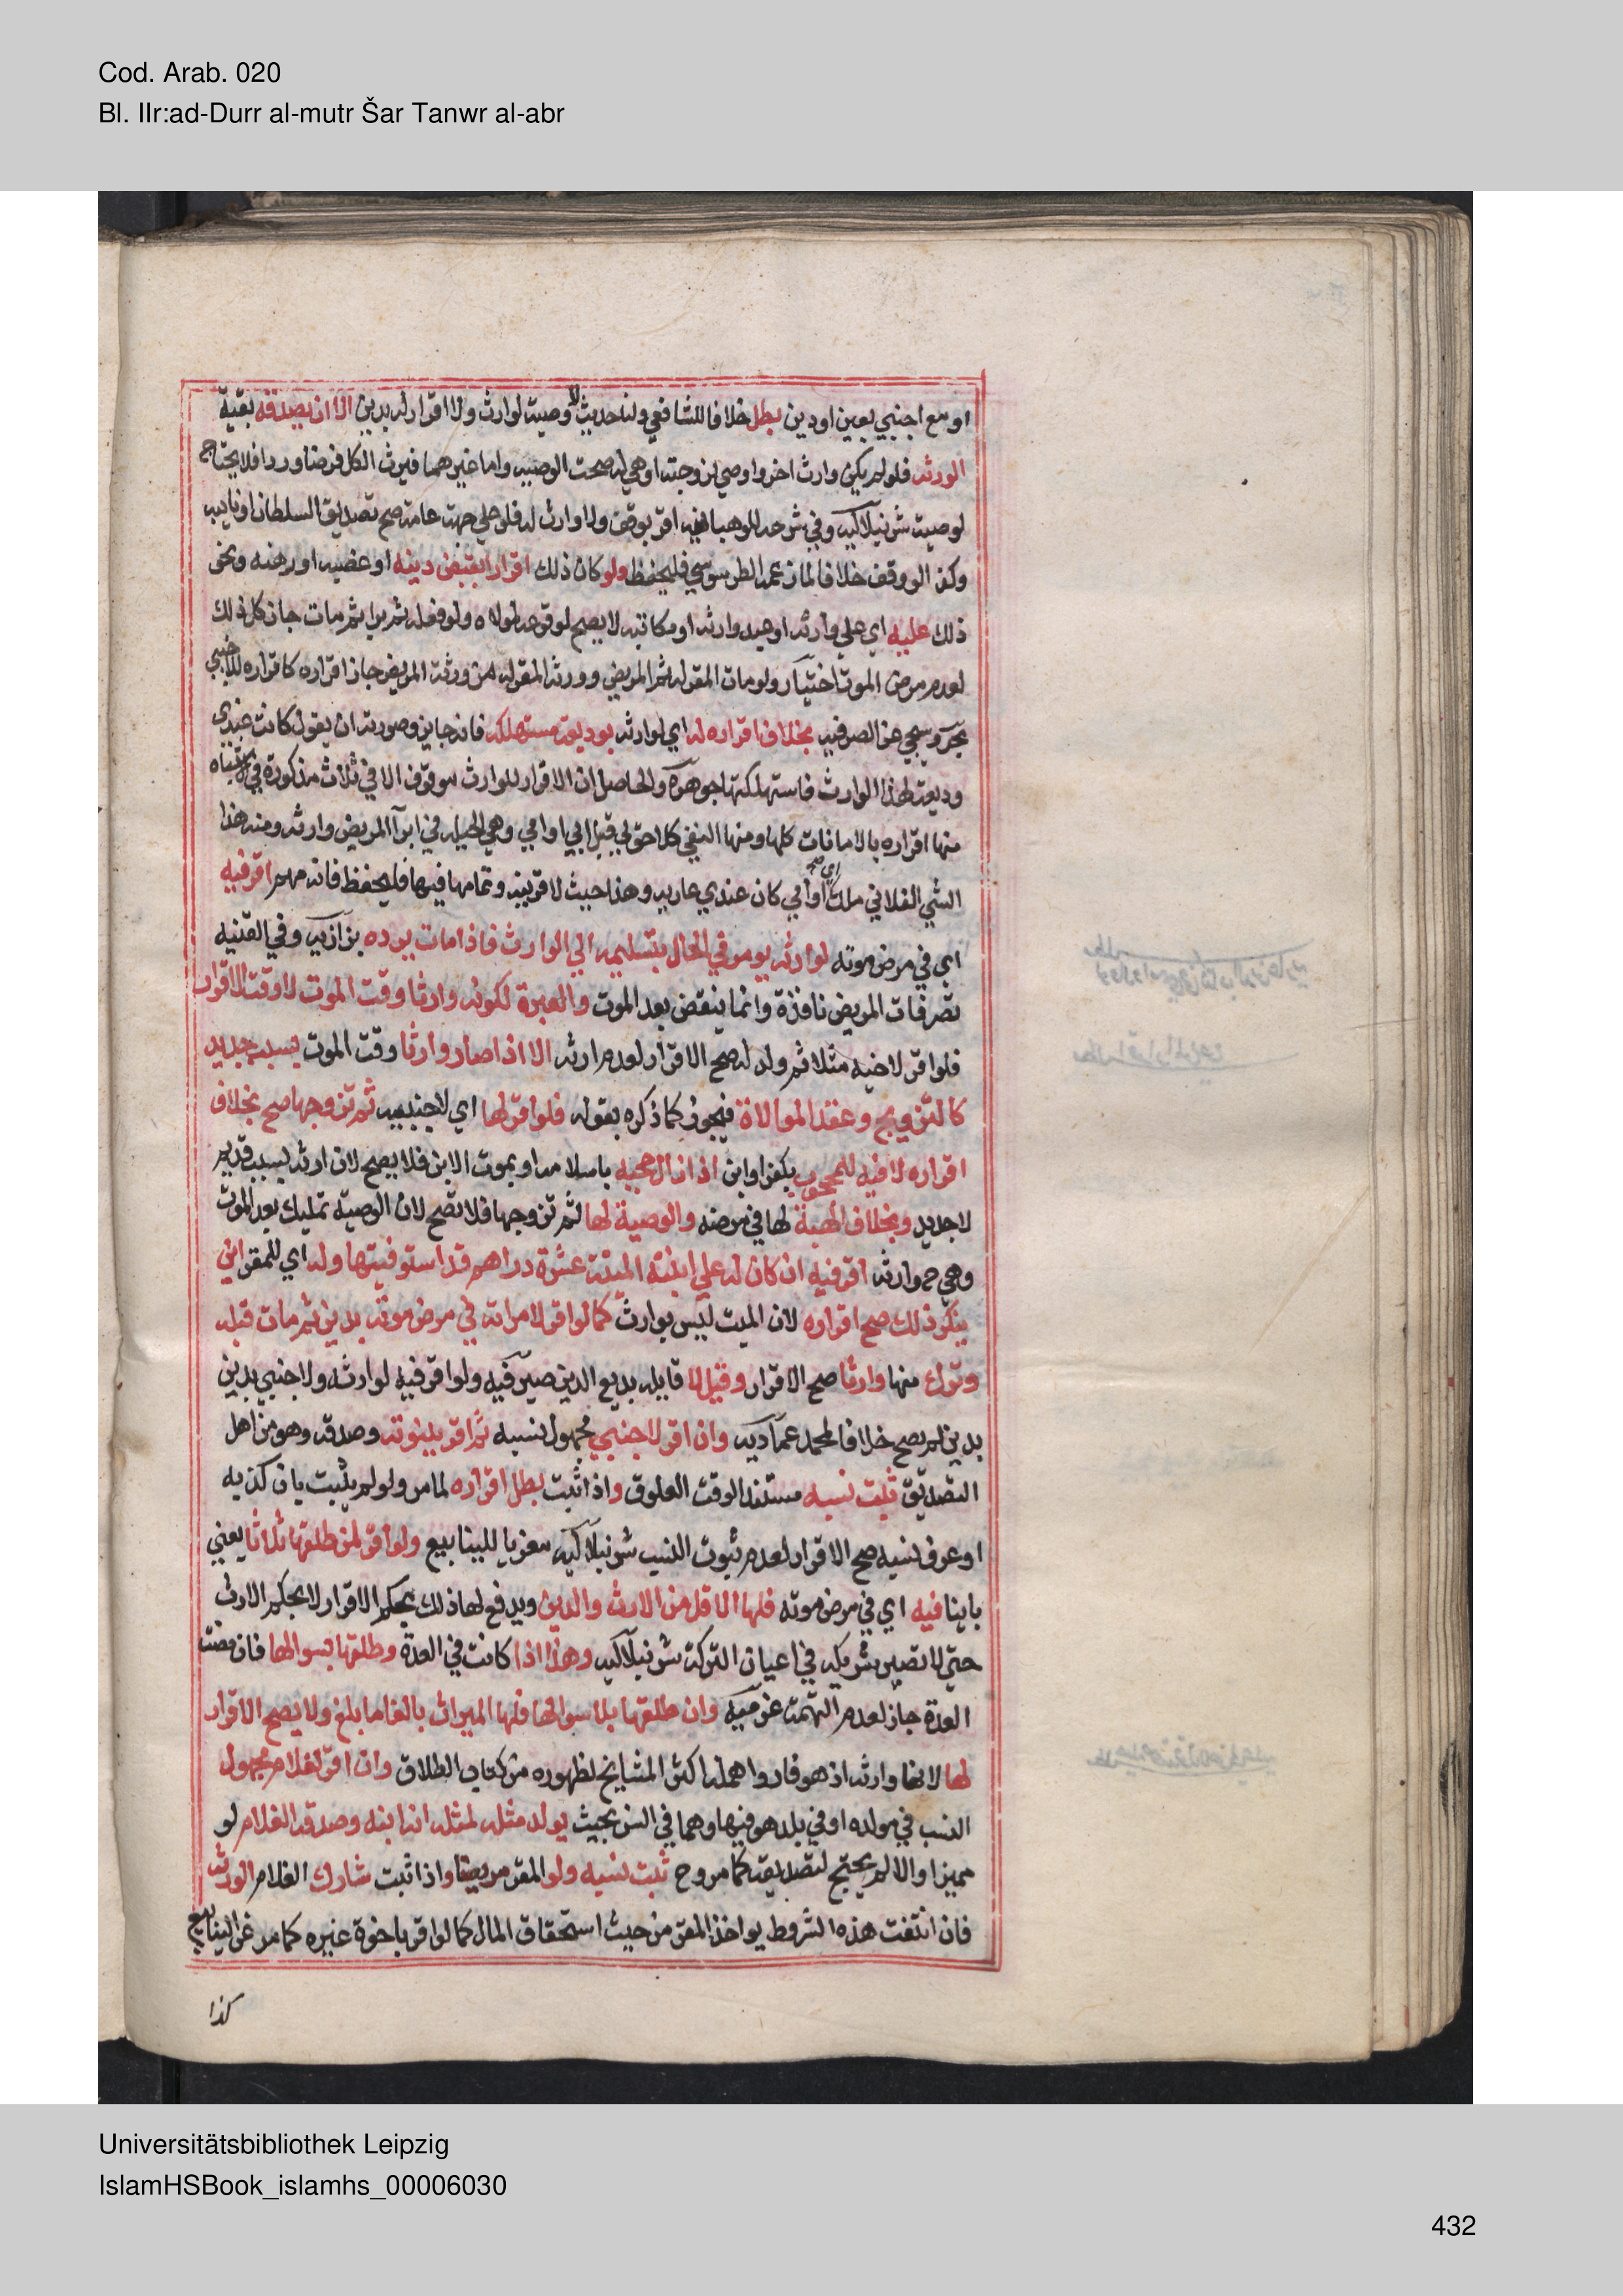 Cod. Arab. 020
Bl. IIr:ad-Durr al-mutr Šar Tanwr al-abr
او مع اجنبي بعين اودين بطل خلافا للشافعي ولنا حديث لا وصية لوارث ولا اقرار له بدين الا ان يصدقه بقية
الورثه فلو لم يكن وارث اخر واوصي لزوجته او هي له صحت الوصيه واما غيرهما فيرث الكل فرضا وردا فلا يحتاج
لوصية شرنبلاليه وفي شرحه للوهبانيه اقر بوقف ولا وارث له فلو علي جهة عامة صح تصديق السلطان او نايبه
وكذا لو وقف خلافا لما زعمه الطرسوسي فليحفظ ولو كان ذلك اقرارا بقبض دينه او غصبه او رهنه ونحو
ذلك عليه اي علي وارثه او عبد وارثه او مكاتبه لا يصح لوقوعه لمولاه ولو فعله ثم برا ثم مات جاز كل ذلك
لعدم مرض الموت اختيار ولو مات المقر له ثم المريض وورثة المقر له من ورثة المريض جاز اقراره كاقراره للاجنبي
بحر وسيجي عن الصرفيه بخلاف اقراره له اي لوارثه بوديعة مستهلكه فانه جايز وصورته ان يقول كانت عندي
وديعة لهذا الوارث فاستهلكتها جوهرة والحاصل ان الاقرار للوارث موقوف الا في ثلاث مذكورة في الاشباه
منها اقراره بالامانات كلها ومنها النفي كلا حق لي قبل ابي او امي وهي الحيلة في ابرآ المريض وارثه ومنه هذا
الشي الفلاني ملك ابي او امي كان عندي عاريه وهذا حيث لا قرينه وتمامها فيها فليحفظ فانه مهم اقر فيه
اي في مرض موته لوارثه يومر في الحال بتسليمه الي الوارث فاذا مات يرده بزازيه وفي القنيه
تصرفات المريض نافذة وانما ينقض بعد الموت والعبرة لكونه وارثا وقت الموت لا وقت الاقرار
فلو اقر لاخيه مثلا ثم ولد له صح الاقرار لعدم ارثه الا اذا صار وارثا وقت الموت بسبب جديد
كالتزويج وعقد الموالاة فيجوز كما ذكره بقوله فلو اقر لها اي لاجنبيه ثم تزوجها صح بخلاف
اقراره لاخيه المحجوب بكفر او ابن اذا زال حجبه باسلامه او بموت الابن فلا يصح لان ارثه بسبب قديم
لا جديد وبخلاف الهبة لها في مرضه والوصية لها ثم تزوجها فلا تصح لان الوصية تمليك بعد الموت
وهي ح وارثه اقر فيه ان كان له علي ابنته الميتة عشرة دراهم قد استوفيتها وله اي للمقر ابن
ينكر ذلك صح اقراره لان الميت ليس بوارث كما لو اقر لامراته في مرض موته بدين ثم مات قبله
وترك منها وارثا صح الاقرار وقيل لا قايله بديع الدين صيرفيه ولو اقر فيه لوارثه ولاجنبي بدين
بدين لم يصح خلافا لمحمد عماديه وان اقر لاجنبي مجهول نسبه ثم اقر ببنوته وصدقه وهو من اهل
التصديق ثبت نسبه مستندا لوقت العلوق واذا ثبت بطل اقراره لما مر ولو لم يثبت بان كذبه
او عرف نسبه صح الاقرار لعدم ثبوت النسب شرنبلاليه معزيا للينابيع ولو اقر لمن طلقها ثلاثا يعني
باينا فيه اي في مرض موته فلها الاقل من الارث والدين ويدفع لها ذلك بحكم الاقرار لا بحكم الارث
حتي لا تصير شريكه في اعيان التركة شرنبلاليه وهذا اذا كانت في العدة وطلقها بسوالها فان مضت
العدة جاز لعدم التهمت عزميه وان طلقها بلا سوالها فلها الميراث بالغا ما بلغ ولا يصح الاقرار
لها لانها وارثه اذ هو فار واهمله اكثر المشايخ لظهوره من كتاب الطلاق وان اقر لغلام مجهول
النسب في مولده او في بلد هو فيها وهما في السن بحيث يولد مثله لمثله انه ابنه وصدقه الغلام لو
مميزا والا لم يحتج لتصديقه كما مر وح ثبت نسبه ولو المقر مريضا واذا ثبت شارك الغلام الورثة
فان انتفت هذه الشروط يواخذ المقر من حيث استحقاق المال كما لو اقر باخوة غيره كما مر عن الينابيع
كذا
Universitätsbibliothek Leipzig
IslamHSBook_islamhs_00006030
432